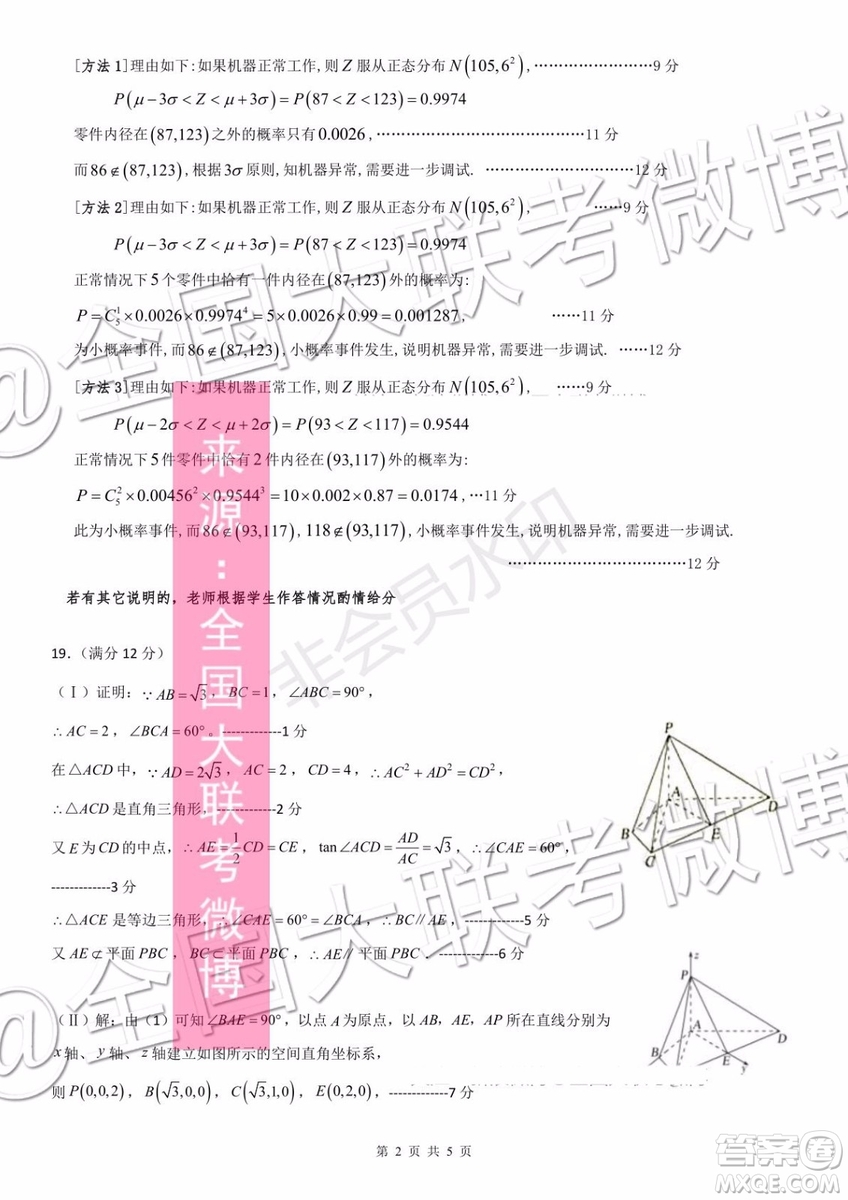 [方法1]理由如下:如果机器正常工作,则Z服从正态分布N(105,6²),……………………9分
P(μ−3σ<Z<μ+3σ)=P(87<Z<123)=0.9974
零件内径在(87,123)之外的概率只有0.0026,……………………………………11分
而86∉(87,123),根据3σ原则,知机器异常,需要进一步调试. …………………………12分
[方法2]理由如下:如果机器正常工作,则Z服从正态分布N(105,6²), ……9分
P(μ−3σ<Z<μ+3σ)=P(87<Z<123)=0.9974
正常情况下5个零件中恰有一件内径在(87,123)外的概率为:
P=C₅¹×0.0026×0.9974⁴=5×0.0026×0.99=0.001287, ……11分
为小概率事件,而86∉(87,123),小概率事件发生,说明机器异常,需要进一步调试. ……12分
[方法3]理由如下:如果机器正常工作,则Z服从正态分布N(105,6²), ……9分
P(μ−2σ<Z<μ+2σ)=P(93<Z<117)=0.9544
正常情况下5件零件中恰有2件内径在(93,117)外的概率为:
P=C₅²×0.00456²×0.9544³=10×0.002×0.87=0.0174,…11分
此为小概率事件,而86∉(93,117),118∉(93,117),小概率事件发生,说明机器异常,需要进一步调试.
…………………………………12分
若有其它说明的，老师根据学生作答情况酌情给分
19.（满分12分）
（Ⅰ）证明：∵AB=√3，BC=1，∠ABC=90°，
∴AC=2，∠BCA=60°。-------------1分
在△ACD中，∵AD=2√3，AC=2，CD=4，∴AC²+AD²=CD²，
∴△ACD是直角三角形，-------------2分
又E为CD的中点，∴AE=1/2CD=CE，tan∠ACD=AD/AC=√3，∴∠CAE=60°，
-------------3分
∴△ACE是等边三角形，∴∠CAE=60°=∠BCA，∴BC//AE，-------------5分
又AE⊄平面PBC，BC⊂平面PBC，∴AE//平面PBC．-------------6分
（Ⅱ）解：由（1）可知∠BAE=90°，以点A为原点，以AB，AE，AP所在直线分别为
x轴、y轴、z轴建立如图所示的空间直角坐标系，
则P(0,0,2)，B(√3,0,0)，C(√3,1,0)，E(0,2,0)，-------------7分
P
A
D
B
E
C
z
P
A
D
B
E
y
第 2 页 共 5 页
@全国大联考微博
@全国大联考微博
来源：全国大联考微博
非会员水印
答案卷
MXQE.COM